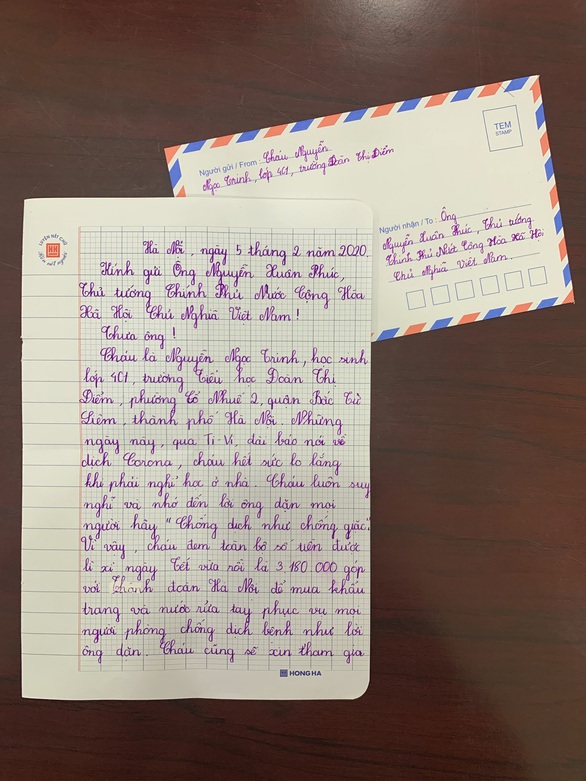 TEM
STAMP
Người gửi / From : Cháu Nguyễn
Ngọc Trinh, lớp 4C1, trường Đoàn Thị Điểm
Người nhận / To : Ông
Nguyễn Xuân Phúc, Thủ tướng
Chính Phủ Nước Cộng Hòa Xã Hội
Chủ Nghĩa Việt Nam
LUYỆN NÉT CHỮ
RÈN NẾT NGƯỜI
Hà Nội, ngày 5 tháng 2 năm 2020.
Kính gửi Ông Nguyễn Xuân Phúc,
Thủ tướng Chính Phủ Nước Cộng Hòa
Xã Hội Chủ Nghĩa Việt Nam!
Thưa ông!
Cháu là Nguyễn Ngọc Trinh, học sinh
lớp 4C1, trường Tiểu học Đoàn Thị
Điểm, phường Cổ Nhuế 2, quận Bắc Từ
Liêm, thành phố Hà Nội. Những
ngày này, qua Ti-Vi, đài báo nói về
dịch Corona, cháu hết sức lo lắng
khi phải nghỉ học ở nhà. Cháu luôn suy
nghĩ và nhớ đến lời ông dặn mọi
người hãy "Chống dịch như chống giặc".
Vì vậy, cháu đem toàn bộ số tiền được
lì xì ngày Tết vừa rồi là 3 180 000 góp
với Thành đoàn Hà Nội để mua khẩu
trang và nước rửa tay phục vụ mọi
người phòng chống dịch bệnh như lời
ông dặn. Cháu cũng sẽ xin tham gia
HONG HA